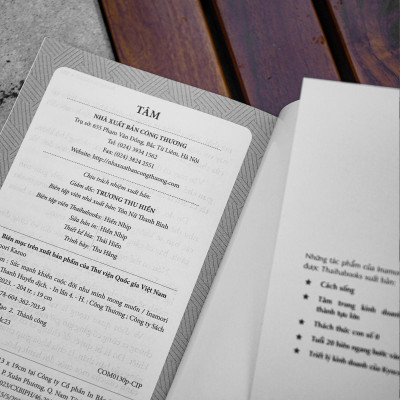 TÂM
NHÀ XUẤT BẢN CÔNG THƯƠNG
Trụ sở: 655 Phạm Văn Đồng, Bắc Từ Liêm, Hà Nội
Tel: (024) 3934 1562
Fax: (024) 3824 2551
Website: http://nhaxuatbancongthuong.com
Chịu trách nhiệm xuất bản:
Giám đốc: TRƯƠNG THU HIỀN
Biên tập viên nhà xuất bản: Tôn Nữ Thanh Bình
Biên tập viên Thaihabooks: Hiền Nhíp
Sửa bản in: Hiền Nhíp
Thiết kế bìa: Thái Hiền
Trình bày: Thu Hằng
Biên mục trên xuất bản phẩm của Thư viện Quốc gia Việt Nam
Kazuo
: Sức mạnh khiến cuộc đời như mình mong muốn / Inamori
Thanh Huyền dịch. - In lần 4. - H. : Công Thương ; Công ty Sách
, 2023. - 204 tr. ; 19 cm
-604-362-703-9
2. Thành công
COM0130p-CIP
x 19cm tại Công ty Cổ phần In
P. Xuân Phương, Q. Nam
Những tác phẩm của
được Thaihabooks xuất bản:
★ Cách sống
★ Tâm trong kinh
thành lụn
★ Thách thức con số 0
★ Tuổi 20
★ Triết lý kinh doanh của